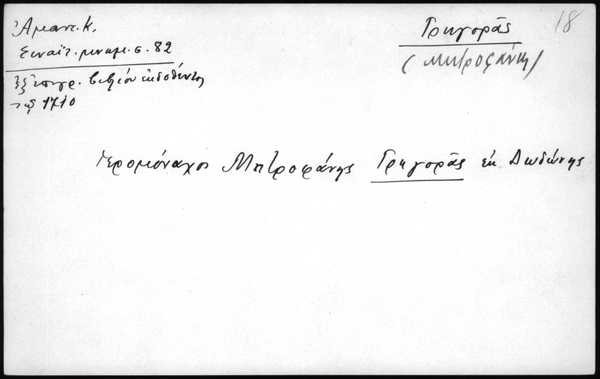 Ἀμαντ. Κ.
Σιναϊτ. μνημ. σ. 82
Ἐξ ἐπιγρ. βιβλίου ἐκδοθέντος
τῷ 1710
Γρηγορᾶς
(Μητροφάνης)
18
Ἱερομόναχος Μητροφάνης Γρηγορᾶς ἐκ Δωδώνης